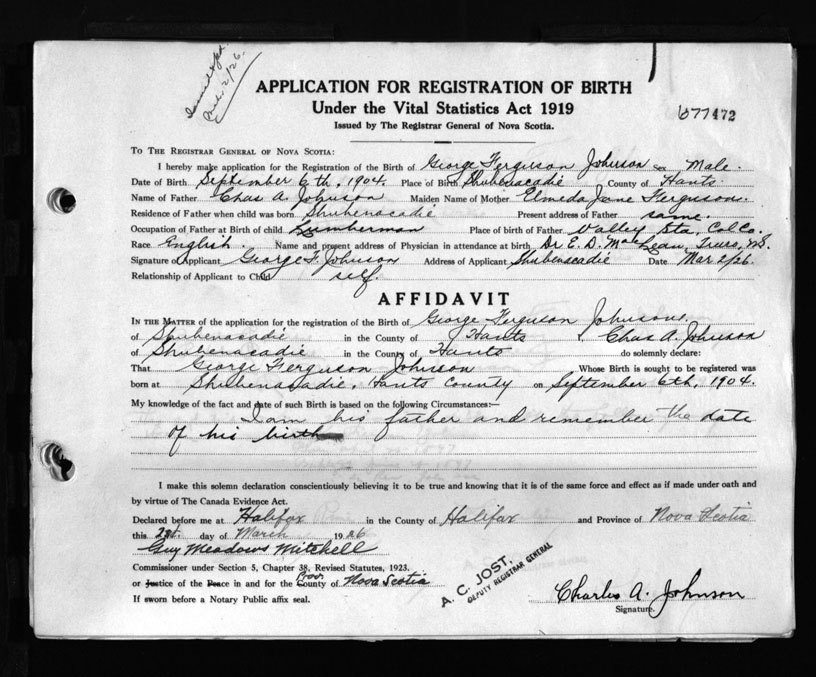 Mar. 2/26.
APPLICATION FOR REGISTRATION OF BIRTH
Under the Vital Statistics Act 1919
Issued by The Registrar General of Nova Scotia.
677472
TO THE REGISTRAR GENERAL OF NOVA SCOTIA:
I hereby make application for the Registration of the Birth of George Ferguson Johnson sex Male.
Date of Birth September 6th, 1904. Place of Birth Shubenacadie County of Hants
Name of Father Chas A. Johnson Maiden Name of Mother Elmeda Jane Ferguson.
Residence of Father when child was born Shubenacadie Present address of Father same.
Occupation of Father at Birth of child. Lumberman Place of birth of Father Valley Sta, Col Co.
Race English. Name and present address of Physician in attendance at birth Dr E. D. Mac Lean, Truro, N.S.
Signature of Applicant George F. Johnson Address of Applicant Shubenacadie Date Mar 2/26.
Relationship of Applicant to Child self.
AFFIDAVIT
IN THE MATTER of the application for the registration of the Birth of George Ferguson Johnson.
of Shubenacadie in the County of Hants, Chas A. Johnson
of Shubenacadie in the County of Hants do solemnly declare:
That George Ferguson Johnson Whose Birth is sought to be registered was
born at Shubenacadie, Hants County on September 6th, 1904.
My knowledge of the fact and date of such Birth is based on the following Circumstances:—
I am his father and remember the date
of his birth
I make this solemn declaration conscientiously believing it to be true and knowing that it is of the same force and effect as if made under oath and
by virtue of The Canada Evidence Act.
Declared before me at Halifax in the County of Halifax and Province of Nova Scotia
this day of March 1926
Guy Meadows Mitchell
Commissioner under Section 5, Chapter 38, Revised Statutes, 1923.
or Justice of the Peace in and for the Prov County of Nova Scotia
If sworn before a Notary Public affix seal.
A. C. JOST,
DEPUTY REGISTRAR GENERAL
Charles A. Johnson
Signature.